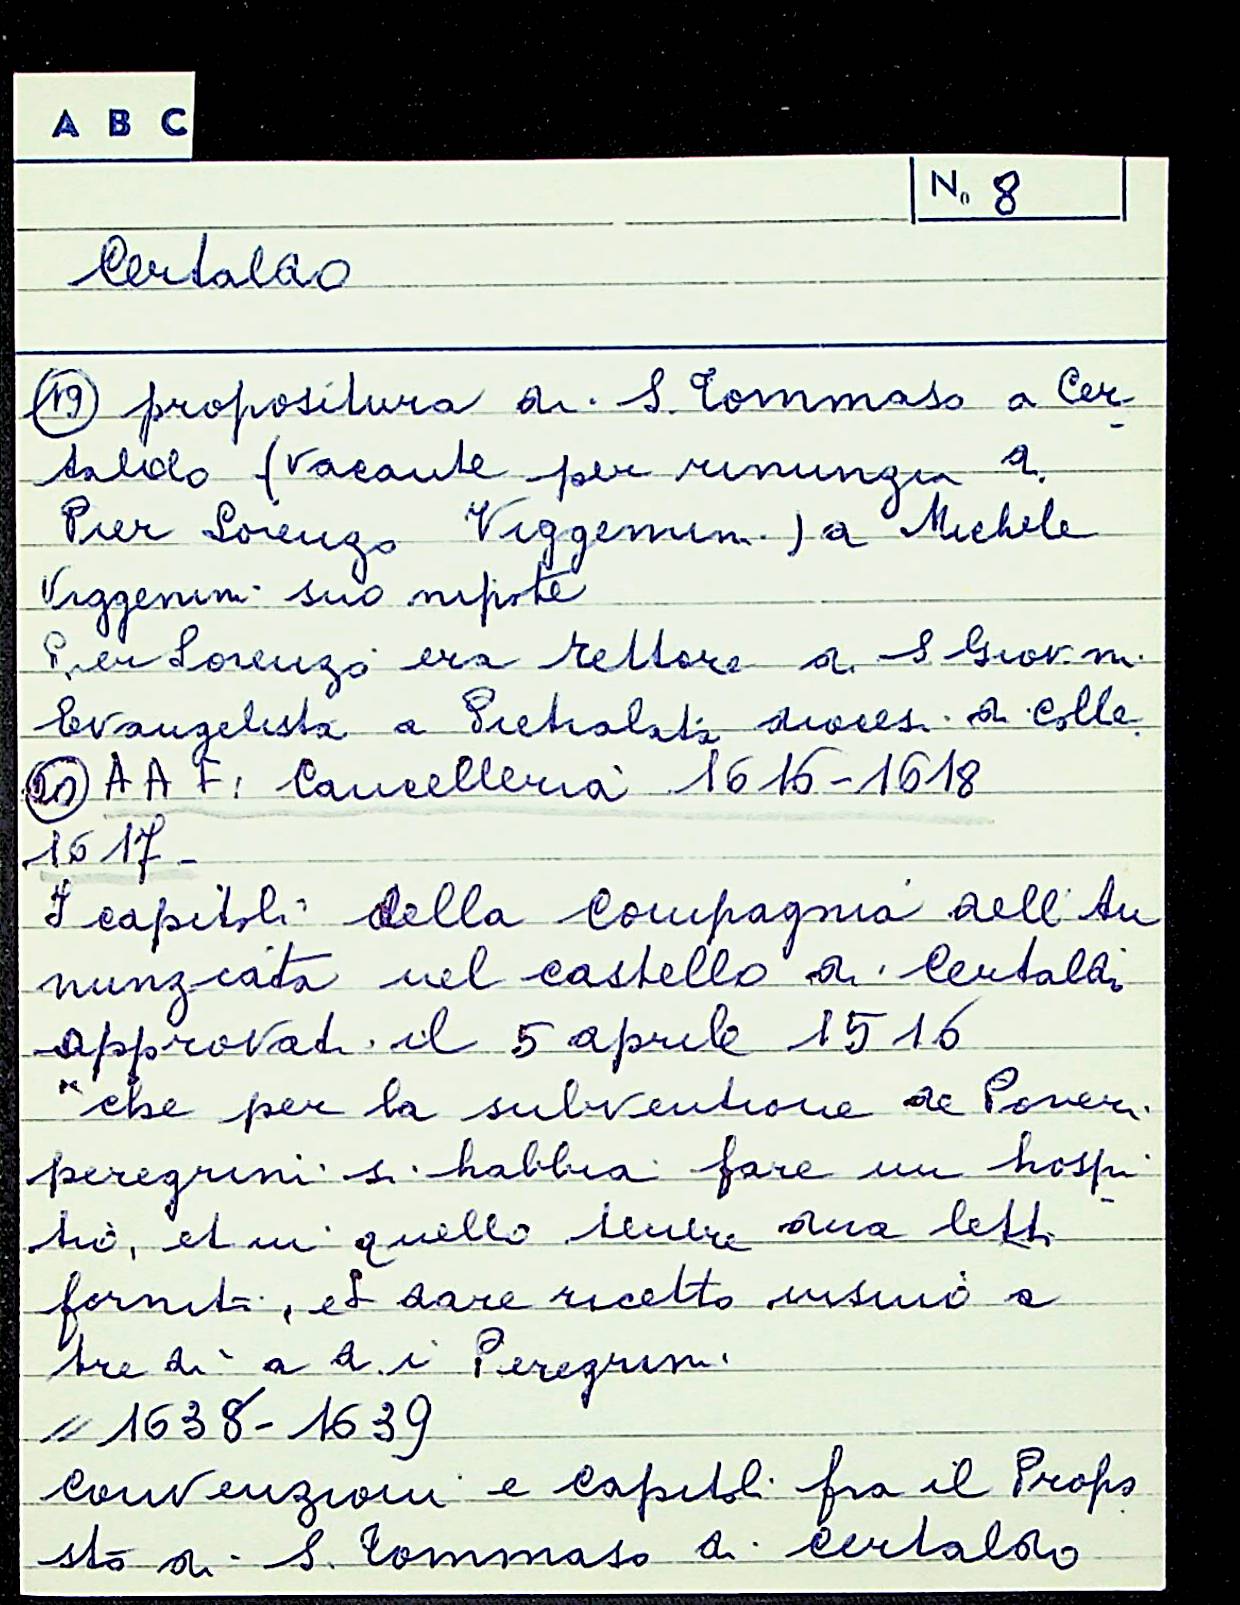 A B C
N. 8
Certaldo
(19) propositura di S. Tommaso a Cer-
taldo (vacante per rinunzia di
Pier Lorenzo Viggenini) a Michele
Viggenini suo nipote
Pier Lorenzo era rettore di S Giovanni
Evangelista a Pietralata diocesi di Colle
(20) A A F: Cancelleria 1616-1618
1617-
I capitoli della Compagnia dell'An
nunziata nel castello di Certaldo
approvati il 5 aprile 1516
"che per la subventione de Poveri
peregrini si habbia fare un hospi-
tio, et in quello tenere dua letti
forniti, et dare ricetto insino a
tre dì a d.i Peregrini
" 1638-1639
Convenzioni e capitoli fra il Propo
sto di S. Tommaso di Certaldo